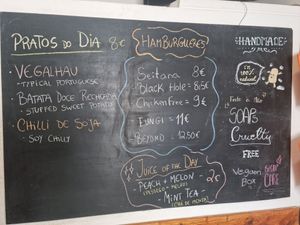 PRATOS DO DIA 8€
• VEGALHAU
- TYPICAL PORTUGUESE
• BATATA DOCE RECHEADA
- STUFFED SWEET POTATO
• CHILLI DE SOJA
- SOY CHILLY
HAMBURGUERES
Seitana 8€
Black Hole = 8.5€
Chicken Free = 9€
FUNGI = 11€
BEYOND = 12.50€
JUICE OF THE DAY
- PEACH + MELON - 2€
(PÊSSEGO + MELÃO)
- MINT TEA -
(CHÁ DE MENTA)
HANDMADE
100% natural
SOAPS
Cruelty
FREE
Vegan
Box
CARE